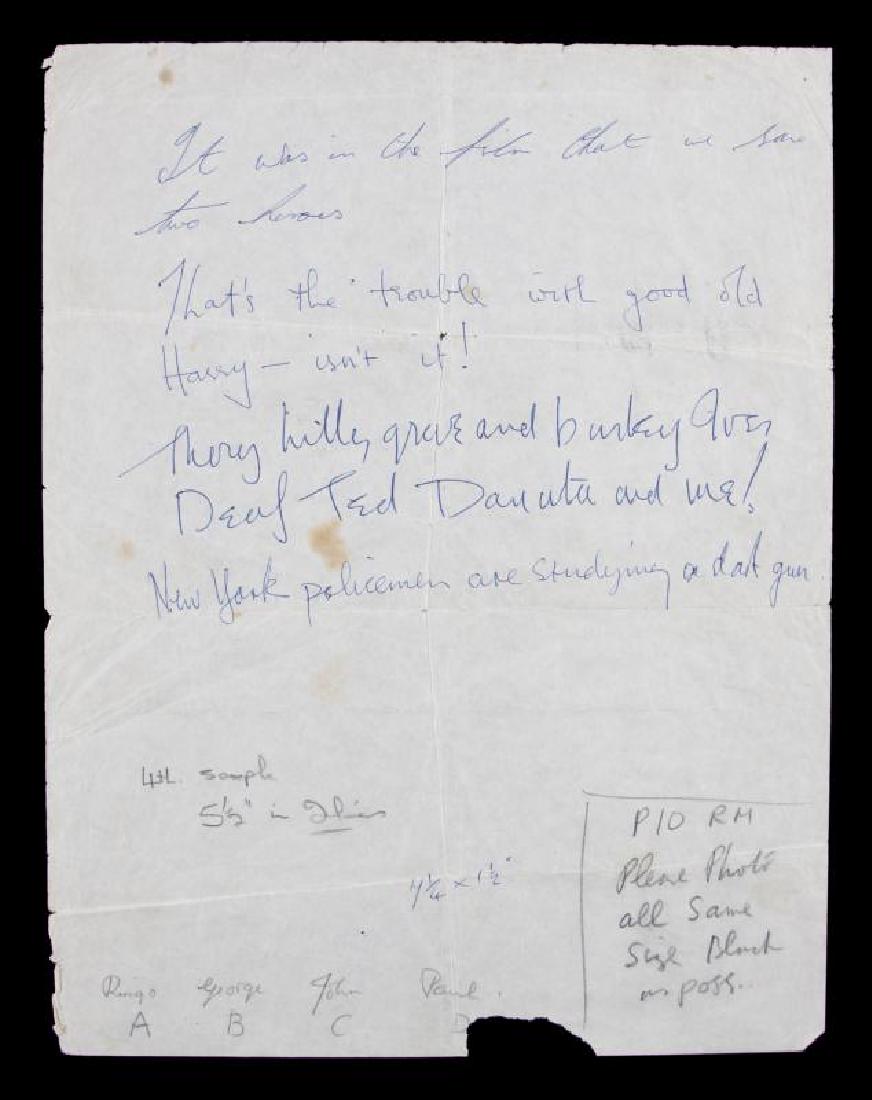 It was in the film that we saw
two heroes
That's the trouble with good old
Harry – isn't it!
and
Deaf Ted Danuta and me!
New York policemen are studying a dart gun.
sample
5½" in
1½"
P10 RM
Please Photo
all Same
Size Black
as poss..
Ringo George John Paul.
A B C D